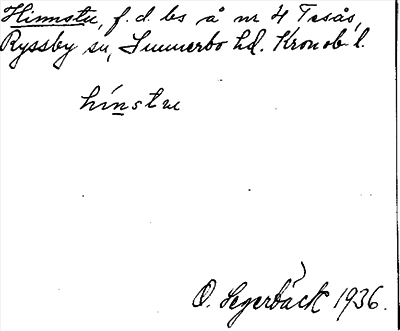 Hinnstu, f.d. bs å nr 4 Tesås,
Ryssby sn, Sunnerbo hd. Kronob. l.
hínstu
O. Segerbäck 1936.